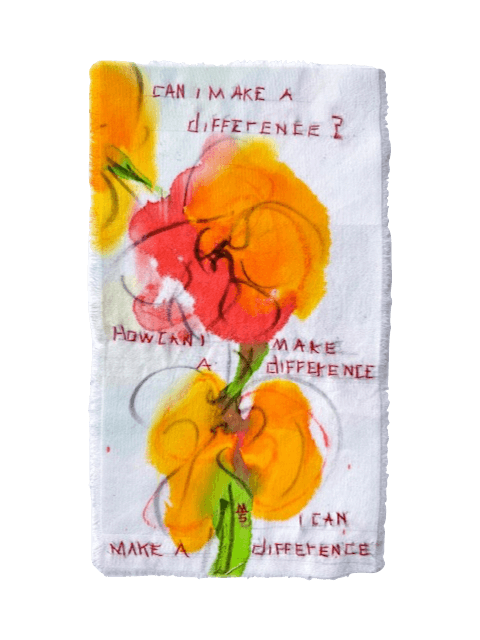 CAN I MAKE A
diFFERENCE?
HOW CAN I MAKE
A diFFERENCE
MS
I CAN
MAKE A diFFERENCE